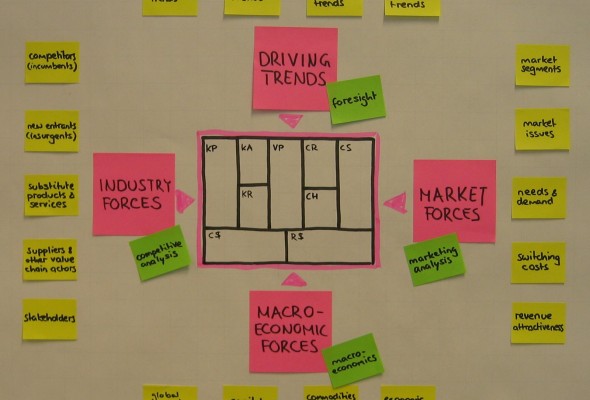 trends
trends
DRIVING
TRENDS
foresight
competitors
(incumbents)
new entrants
(insurgents)
substitute
products &
services
suppliers &
other value
chain actors
stakeholders
INDUSTRY
FORCES
competitive
analysis
KP
KA
VP
CR
CS
KR
CH
C$
R$
MARKET
FORCES
marketing
analysis
market
segments
market
issues
needs &
demand
switching
costs
revenue
attractiveness
MACRO-
ECONOMIC
FORCES
macro-
economics
global
commodities